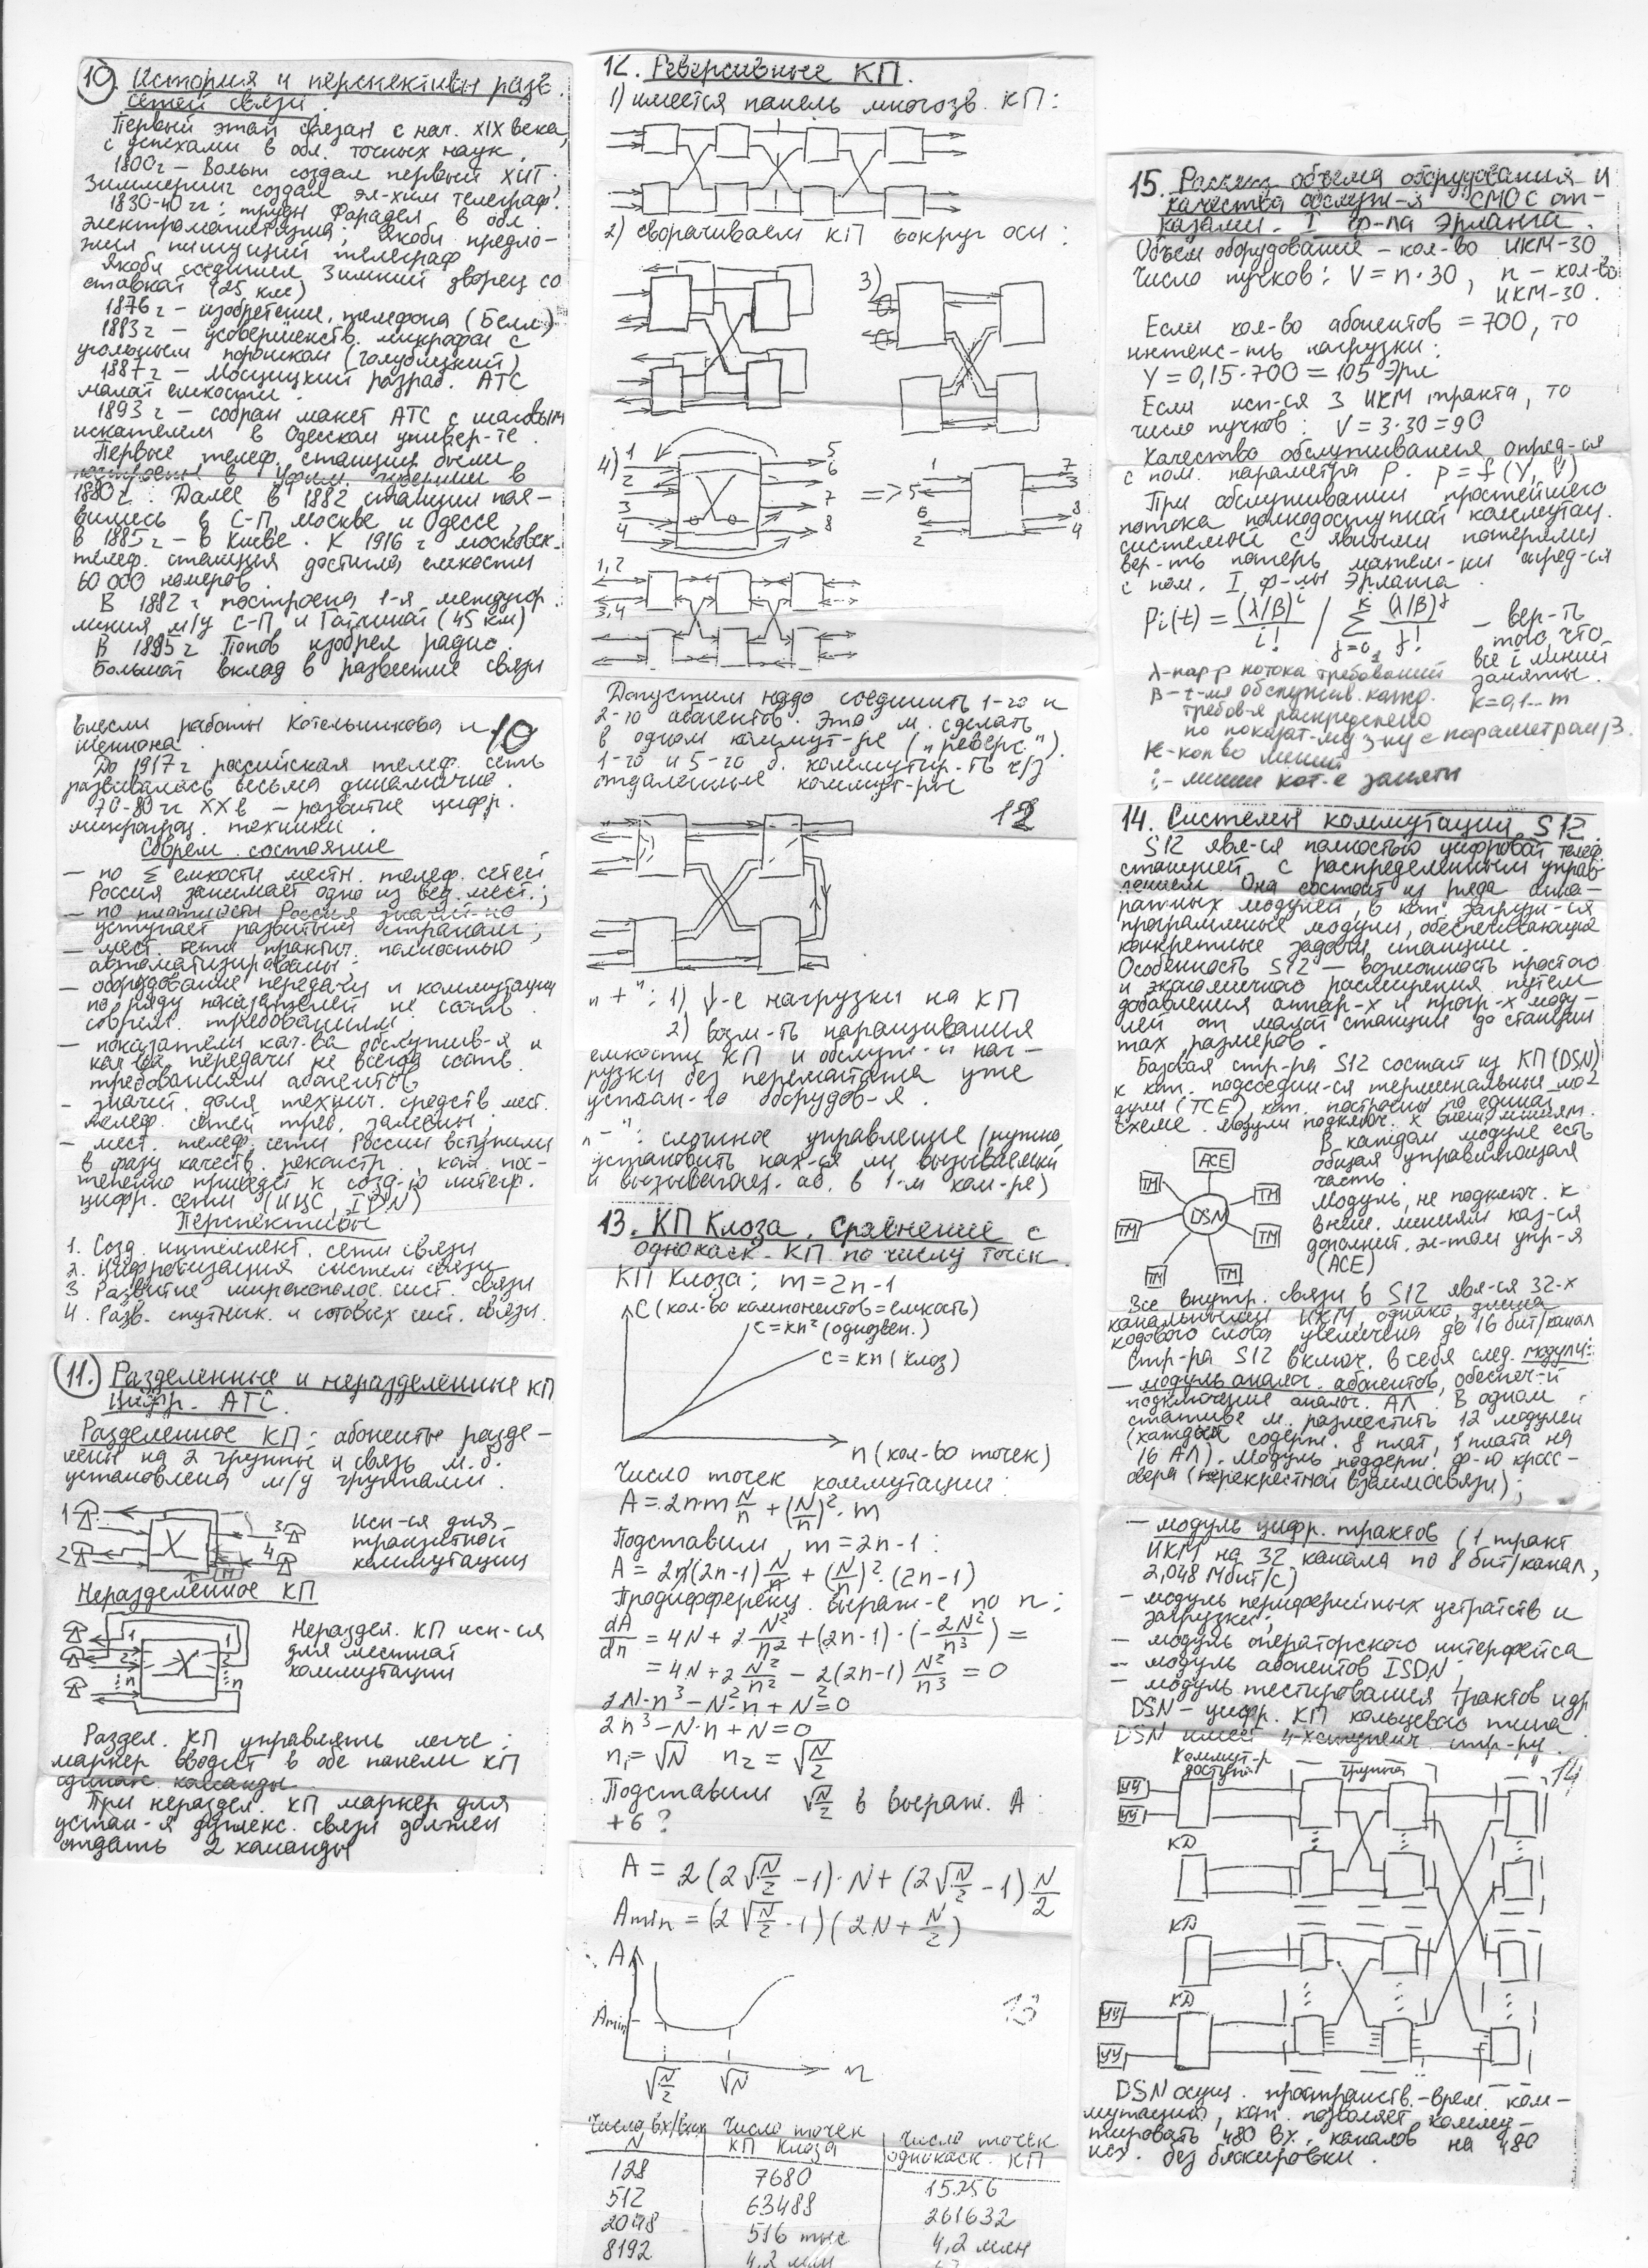 10. История и перспективы разв.
сетей связи.
Первый этап связан с нач. XIX века,
с успехами в обл. точных наук.
1800г – Вольт создал первый ХИТ.
Зиммеринг создал эл-хим телеграф.
1830-40 гг: труды Фарадея в обл.
электромагнетизма; Якоби предло-
жил пишущий телеграф
Якоби соединил Зимний дворец со
ставкой (25 км)
1876 г – изобретение телефона (Белл)
1883 г – усовершенств. микрофон с
угольным порошком (Голубицкий)
1887 г – Мосцицкий разраб. АТС
малой емкости.
1893 г – собран макет АТС с шаговым
искателем в Одесском универ-те.
Первые телеф. станции были
построены в
1880 г. Далее в 1882 станции поя-
вились в С-П, Москве и Одессе,
в 1885 г – в Киеве. К 1916 г московск.
телеф. станция достигла емкости
60 000 номеров.
В 1882 г построена 1-я междугор.
линия м/у С-П и Гатчиной (45 км)
В 1895 г Попов изобрел радио.
Большой вклад в развитие связи
внесли работы Котельникова и
Шеннона.
10
До 1917 г российская телеф. сеть
развивалась весьма динамично.
70-80 гг XX в – развитие цифр.
микропроц. техники.
Соврем. состояние
– по Σ емкости местн. телеф. сетей
Россия занимает одно из вед. мест.;
– по плотности Россия значит-но
уступает развитым странам;
– мест. сети практич. полностью
автоматизированы;
– оборудование передачи и коммутации
по ряду показателей не соотв.
соврем. требованиям;
– показатели кач-ва обслужив-я и
кач-ва передачи не всегда соотв.
требованиям абонентов;
– значит. доля технич. средств мест.
телеф. сетей треб. замены;
– мест. телеф. сети России вступили
в фазу качеств. реконстр., кот. пос-
тепенно приведет к созд-ю интегр.
цифр. сети (ИЦС, IDN)
Перспективы
1. Созд. интеллект. сети связи
2. Цифровизация систем связи
3. Развитие широкополос. сист. связи
4. Разв. спутник. и сотовых сист. связи.
11. Разделенные и неразделенные КП
Цифр. АТС.
Разделенное КП: абоненты разде-
лены на 2 группы и связь м.б.
установлена м/у группами.
1
2
3
4
Исп-ся для
транзитной
коммутации
Неразделенное КП
1
2
n
1
2
n
Нераздел. КП исп-ся
для местной
коммутации
Раздел. КП управлять легче:
маркер вводит в обе панели КП
одинак. команды
При нераздел. КП маркер для
устан-я дуплекс. связи должен
отдать 2 команды
12. Реверсивные КП.
1) имеется панель многозв. КП:
2) сворачиваем КП вокруг оси:
3)
4)
1
2
3
4
5
6
7
8
=>
1
5
6
2
7
3
8
4
1,2
3,4
Допустим надо соединить 1-го и
2-го абонентов. Это м. сделать
в одном коммут-ре ("реверс").
1-го и 5-го б. коммутир-ть ч/з
отдаленные коммут-ры
12
"+": 1) ↓-е нагрузки на КП
2) возм-ть наращивания
емкости КП и обслуж-я наг-
рузки без перемонтажа уже
устан-го оборудов-я.
"–": сложное управление (нужно
установить нах-ся ли вызываемый
и вызывающ. аб. в 1-м ком-ре)
13. КП Клоза. Сравнение с
однокаск. КП по числу точек.
КП Клоза: m = 2n-1
C (кол-во компонентов = емкость)
C = kn² (однозвен.)
C = kn (клоз)
n (кол-во точек)
Число точек коммутации:
A = 2n·m N/n + (N/n)²·m
Подставим, m = 2n-1:
A = 2n(2n-1) N/n + (N/n)²·(2n-1)
Продифференц. выраж-е по n:
dA/dn = 4N + 2 N²/n² + (2n-1)·(-2N²/n³) =
= 4N + 2 N²/n² - 2(2n-1) N²/n³ = 0
2N·n³ - N²·n + N² = 0
2n³ - N·n + N = 0
n₁ = √N n₂ = √(N/2)
Подставим √(N/2) в выраж. A:
+6?
A = 2(2√(N/2) - 1)·N + (2√(N/2) - 1) N/2
Amin = (2√(N/2) - 1)(2N + N/2)
A
Amin
√(N/2)
√N
n
13
Число вх/вых N | Число точек КП Клоза | Число точек однокаск. КП
128 7680 15256
512 63488 261632
2048 516 тыс 4,2 млн
8192 4,2 млн
15. Рассчет объема оборудования и
качества обслуж-я СМО с от-
казами. I ф-ла Эрланга.
Объем оборудования – кол-во ИКМ-30
Число пучков: V = n·30, n – кол-во
ИКМ-30.
Если кол-во абонентов = 700, то
интенс-ть нагрузки:
Y = 0,15·700 = 105 Эрл
Если исп-ся 3 ИКМ тракта, то
число пучков: V = 3·30 = 90
Качество обслуживания опред-ся
с пом. параметра P. P = f(Y, V)
При обслуживании простейшего
потока полнодоступной коммутац.
системы с явными потерями
вер-ть потерь матем-ки опред-ся
с пом. I ф-лы Эрланга.
Pi(t) = (λ/β)^i / i! / Σ (λ/β)^j / j!
k
j=0
– вер-ть
того, что
все i линий
заняты.
λ – пар-р потока требований
β – t-мя обслужив. кажд.
требов-я распределено
по показат-му з-ну с параметрам β.
k = 0,1... m
К – кол-во линий
i – линии кот-е заняты
14. Системы коммутации S12.
S12 явл-ся полностью цифровой телеф.
станцией с распределенным управ-
лением. Она состоит из ряда аппа-
ратных модулей, в кот. загруж-ся
программные модули, обеспечивающие
конкретные задачи станции.
Особенность S12 – возможность простого
и экономичного расширения путем
добавления аппар-х и прогр-х моду-
лей от малой станции до станции
max размеров.
Базовая стр-ра S12 состоит из КП (DSN)
к кот. подсоедин-ся терминальные мо-
дули (TCE), кот. построены по единой
схеме. Модули подключ. к внеш. линиям.
ACE
ТМ
ТМ
ТМ
ТМ
ТМ
ТМ
DSN
В каждом модуле есть
общая управляющая
часть.
Модуль, не подключ. к
внеш. линиям наз-ся
дополнит. эл-том упр-я
(ACE)
Все внутр. связи в S12 явл-ся 32-х
канальными ИКМ, однако, длина
кодового слова увеличена до 16 бит/канал
Стр-ра S12 включ. в себя след. модули:
– модуль аналог. абонентов, обеспеч-й
подключение аналог. АЛ. В одном
стативе м. разместить 12 модулей
(каждый содерж. 8 плат, 1 плата на
16 АЛ). Модуль поддерж. ф-ю кросс-
овера (перекрестной взаимосвязи);
– модуль цифр. трактов (1 тракт
ИКМ на 32 канала по 8 бит/канал,
2,048 Мбит/с)
– модуль периферийных устройств и
загрузки;
– модуль операторского интерфейса
– модуль абонентов ISDN;
– модуль тестирования трактов и др
DSN – цифр. КП кольцевого типа.
DSN имеет 4-хступенч. стр-ру.
14
Коммут-р
доступа
Группа
УУ
УУ
КД
КД
КД
УУ
УУ
DSN осущ. пространств.-врем. ком-
мутацию, кот. позволяет комму-
тировать 480 вх. каналов на 480
исх. без блокировки.